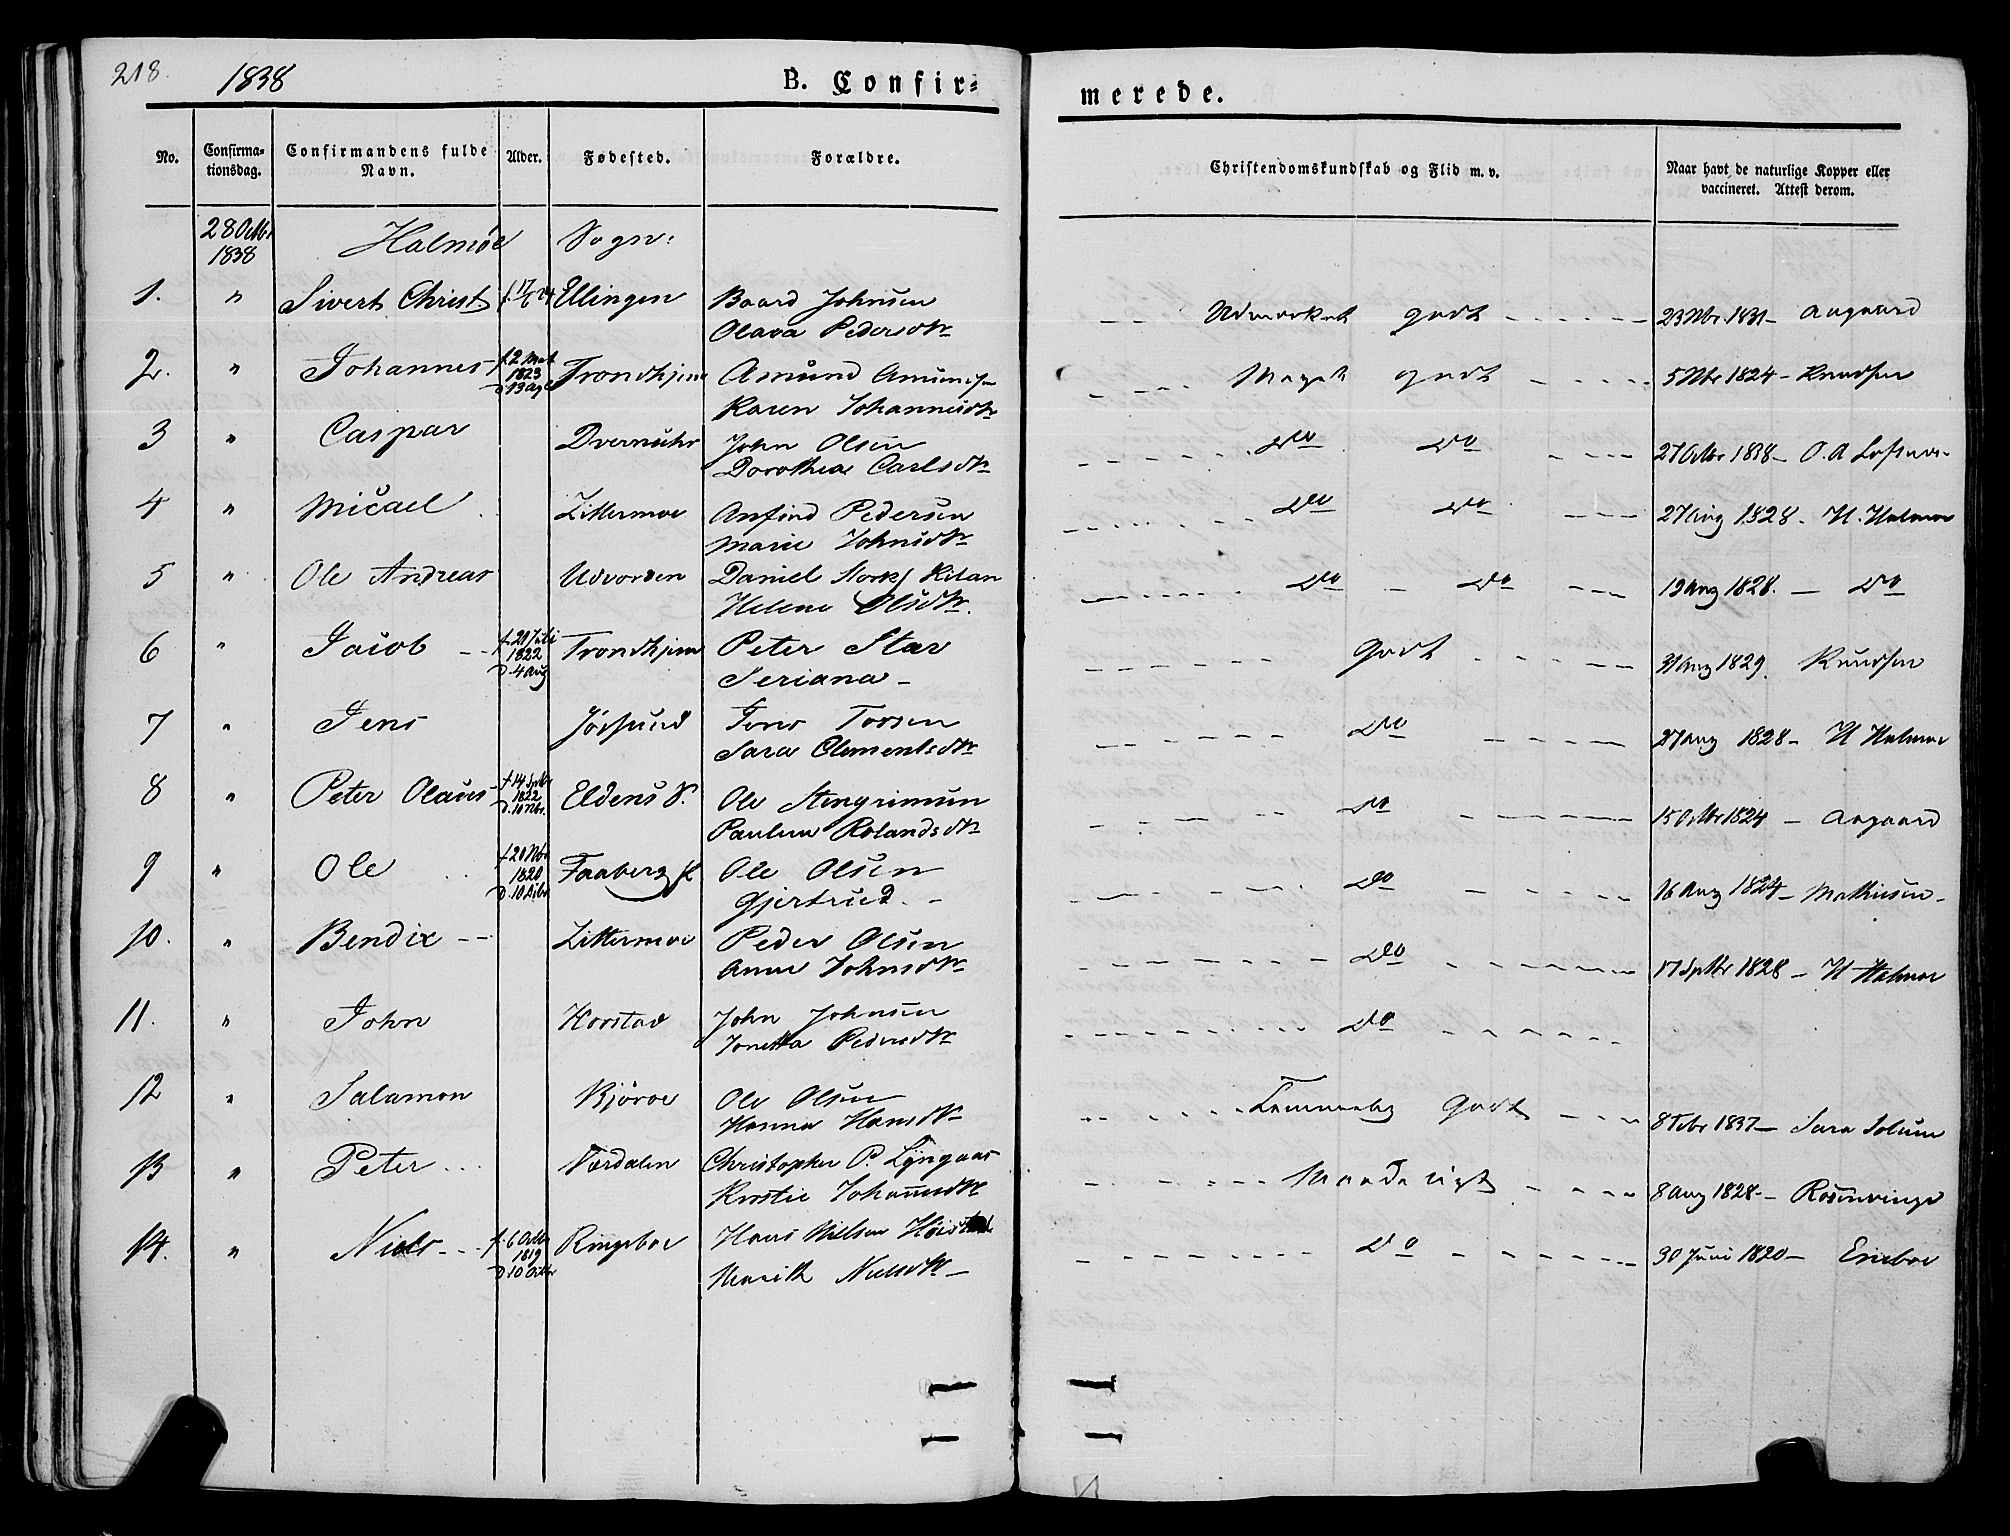 218. 1838 B. Confir= merede.
No. Confirma-tionsdag. Confirmandens fulde Navn. Alder. Fødested. Forældre. Christendomskundskab og Flid m. v. Naar havt de naturlige Kopper eller vaccineret. Attest derom.
28 Octbr 1838 Halmøe Sogn:
1. " Sivert Christ. Ellingen Baard Johnsen Udmærket godt 23 Nbr. 1831 - Aagaard
Olava Pedersdtr
2. " Johannes f. 2 Mart 1823 D. 13 Apl Trondhjem Asmund Meget godt 5 Nbr 1824 - Knudsen
Karen Johannesdtr
3 " Caspar John Olsen Do Do 27 Octbr 1838 - O. A.
Dorothea Carlsdtr
4 " Micael Zittermoe Anfind Pedersen Do Do 27 Aug 1828 - H. Halmoe
Marie Johnsdtr
5 " Ole Andreas Udvorden Daniel Kilan Do - Do 19 Aug 1828. - Do
Helene Olsdtr.
6 " Jacob f. 20 Juli 1822 D. 4 Aug Trondhjem Peter Star godt 31 Aug 1829. Knudsen
Seriana -
7 " Jens Jøssund Jens Torsen Do 27 Aug 1828 - H Halmoe
Sara Clementsdtr
8 " Peter Olaus f. 14 Sptbr 1822 D. 10 Nbr. Eldens Ole Stengrimsen Do 15 Octbr 1824 - Aagaard
Pauline Rolandsdtr
9 " Ole f. 20 Nbr 1820 D. 10 Faaberg Ole Olsen Do 16 Aug 1824 - Mathiesen -
Gjertrud -
10. " Bendix - Zittermoe Peder Olsen Do 17 Sptbr 1828 - H Halmoe
Anne Johnsdtr
11. " John Horstad John Johnsen Do
Jonetta Pedersdtr
12 " Salamon Bjøroe Ole Olsen Temmelig godt 1837 - Sara Solum
Hanna Hansdtr
13 " Peter Værdalen Christopher P. Lyngaas Maadeligt 8 Aug 1828 - Rosenvinge
Kirstie Johannesdtr
14. " Niels f. 6 Octbr 1819 D. 10 Octbr Ringeboe Hans Nielsen Do 30 Juni 1820 -
Marith Nielsdtr -